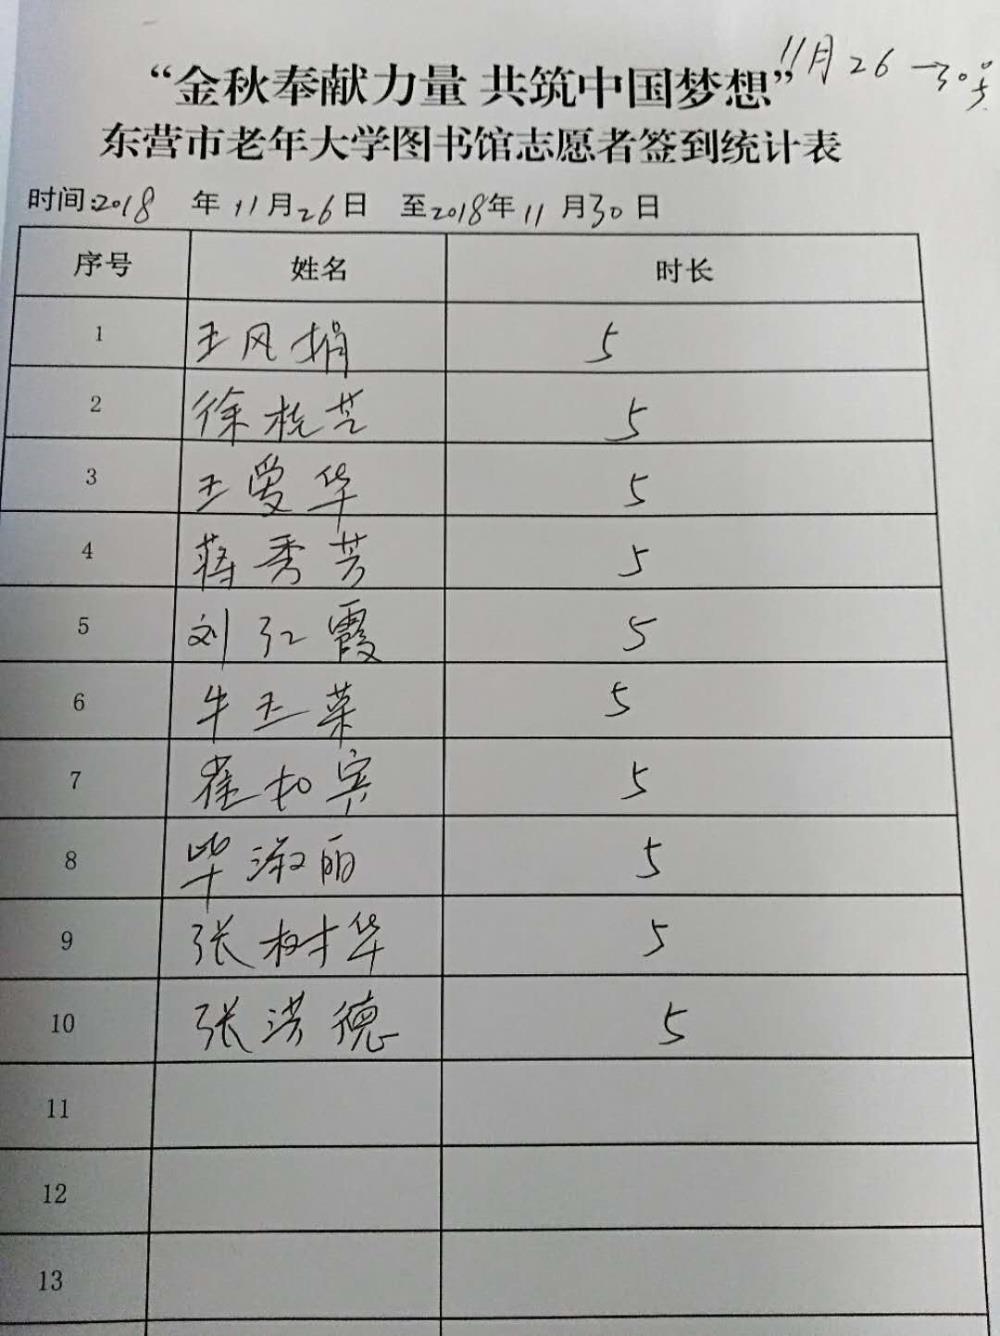 11月26－30号
“金秋奉献力量 共筑中国梦想”
东营市老年大学图书馆志愿者签到统计表
时间:2018 年11月26日 至2018年11月30日
序号 姓名 时长
1 王风娟 5
2 徐桂芝 5
3 王爱华 5
4 蒋秀芳 5
5 刘红霞 5
6 牛玉菜 5
7 崔 5
8 毕淑丽 5
9 张树华 5
10 张洪德 5
11
12
13